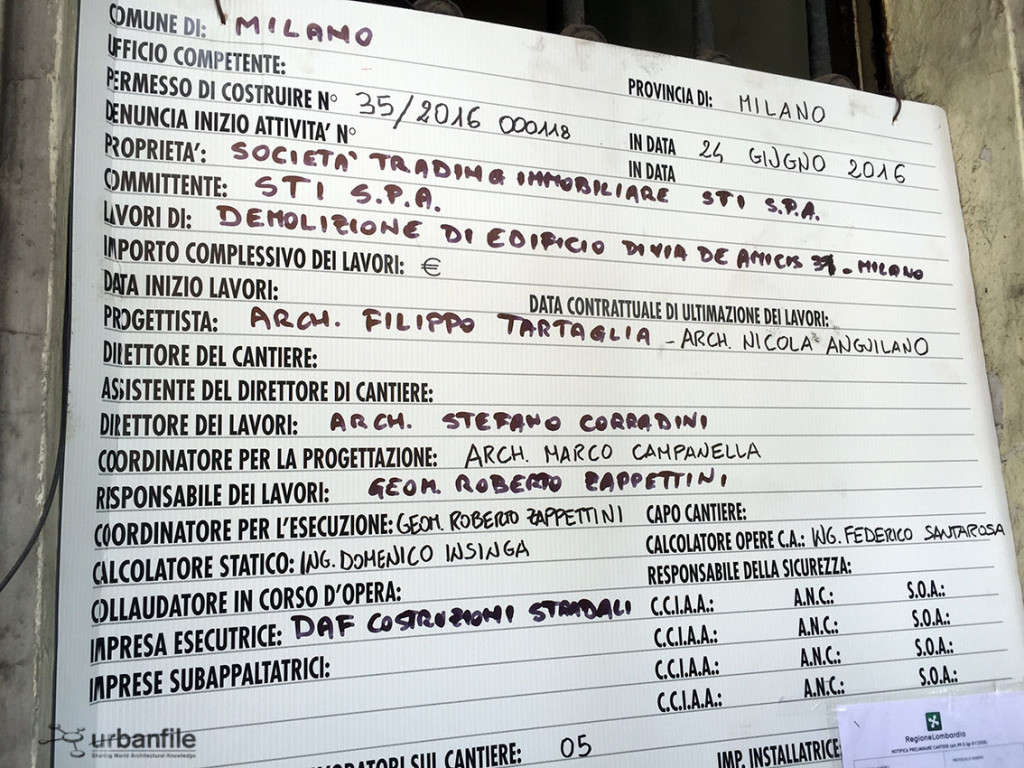 COMUNE DI: MILANO
UFFICIO COMPETENTE: PROVINCIA DI: MILANO
PERMESSO DI COSTRUIRE N° 35/2016 000118 IN DATA 24 GIUGNO 2016
DENUNCIA INIZIO ATTIVITA' N° IN DATA
PROPRIETA': SOCIETA' TRADING IMMOBILIARE STI S.P.A.
COMMITTENTE: STI S.P.A.
LAVORI DI: DEMOLIZIONE DI EDIFICIO DI VIA DE AMICIS - MILANO
IMPORTO COMPLESSIVO DEI LAVORI: €
DATA INIZIO LAVORI: DATA CONTRATTUALE DI ULTIMAZIONE DEI LAVORI:
PROGETTISTA: ARCH. FILIPPO TARTAGLIA - ARCH. NICOLA ANGUILANO
DIRETTORE DEL CANTIERE:
ASSISTENTE DEL DIRETTORE DI CANTIERE:
DIRETTORE DEI LAVORI: ARCH. STEFANO CORRADINI
COORDINATORE PER LA PROGETTAZIONE: ARCH. MARCO CAMPANELLA
RESPONSABILE DEI LAVORI: GEOM. ROBERTO ZAPPETTINI
COORDINATORE PER L'ESECUZIONE: GEOM. ROBERTO ZAPPETTINI CAPO CANTIERE:
CALCOLATORE STATICO: ING. DOMENICO INSINGA CALCOLATORE OPERE C.A.: ING. FEDERICO SANTAROSA
COLLAUDATORE IN CORSO D'OPERA: RESPONSABILE DELLA SICUREZZA:
IMPRESA ESECUTRICE: DAF COSTRUZIONI STRADALI C.C.I.A.A.: A.N.C.: S.O.A.:
IMPRESE SUBAPPALTATRICI: C.C.I.A.A.: A.N.C.: S.O.A.:
C.C.I.A.A.: A.N.C.: S.O.A.:
C.C.I.A.A.: A.N.C.: S.O.A.:
SUL CANTIERE: 05 IMP. INSTALLATRICE
RegioneLombardia
urbanfile
Sharing World Architectural Knowledge